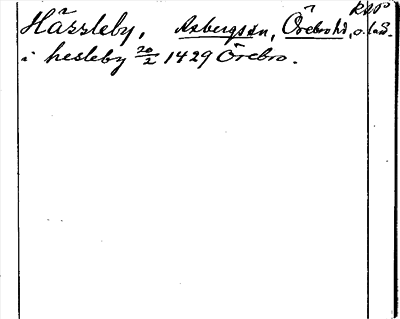 RAP°
Hässleby, Asbergs sn, Örebro hd, o. län.
i hesleby 20/2 1429 Örebro.